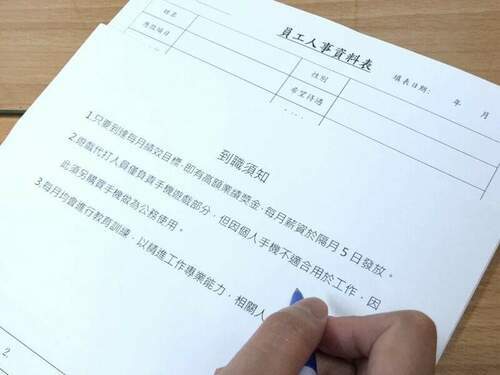 員工人事資料表
填表日期： 年 月
姓名
性別
應徵項目
希望待遇
到職須知
1.只要到達每月績效目標,即有高額業績獎金,每月薪資於隔月5日發放。
2.遊戲代打人員僅負責手機遊戲部分，但因個人手機不適合用於工作，因
此須另購買手機做為公務使用。
3.每月均會進行教育訓練，以精進工作專業能力，相關人
2.